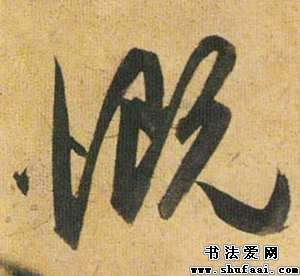 慨
书法爱网
www.shufaai.com